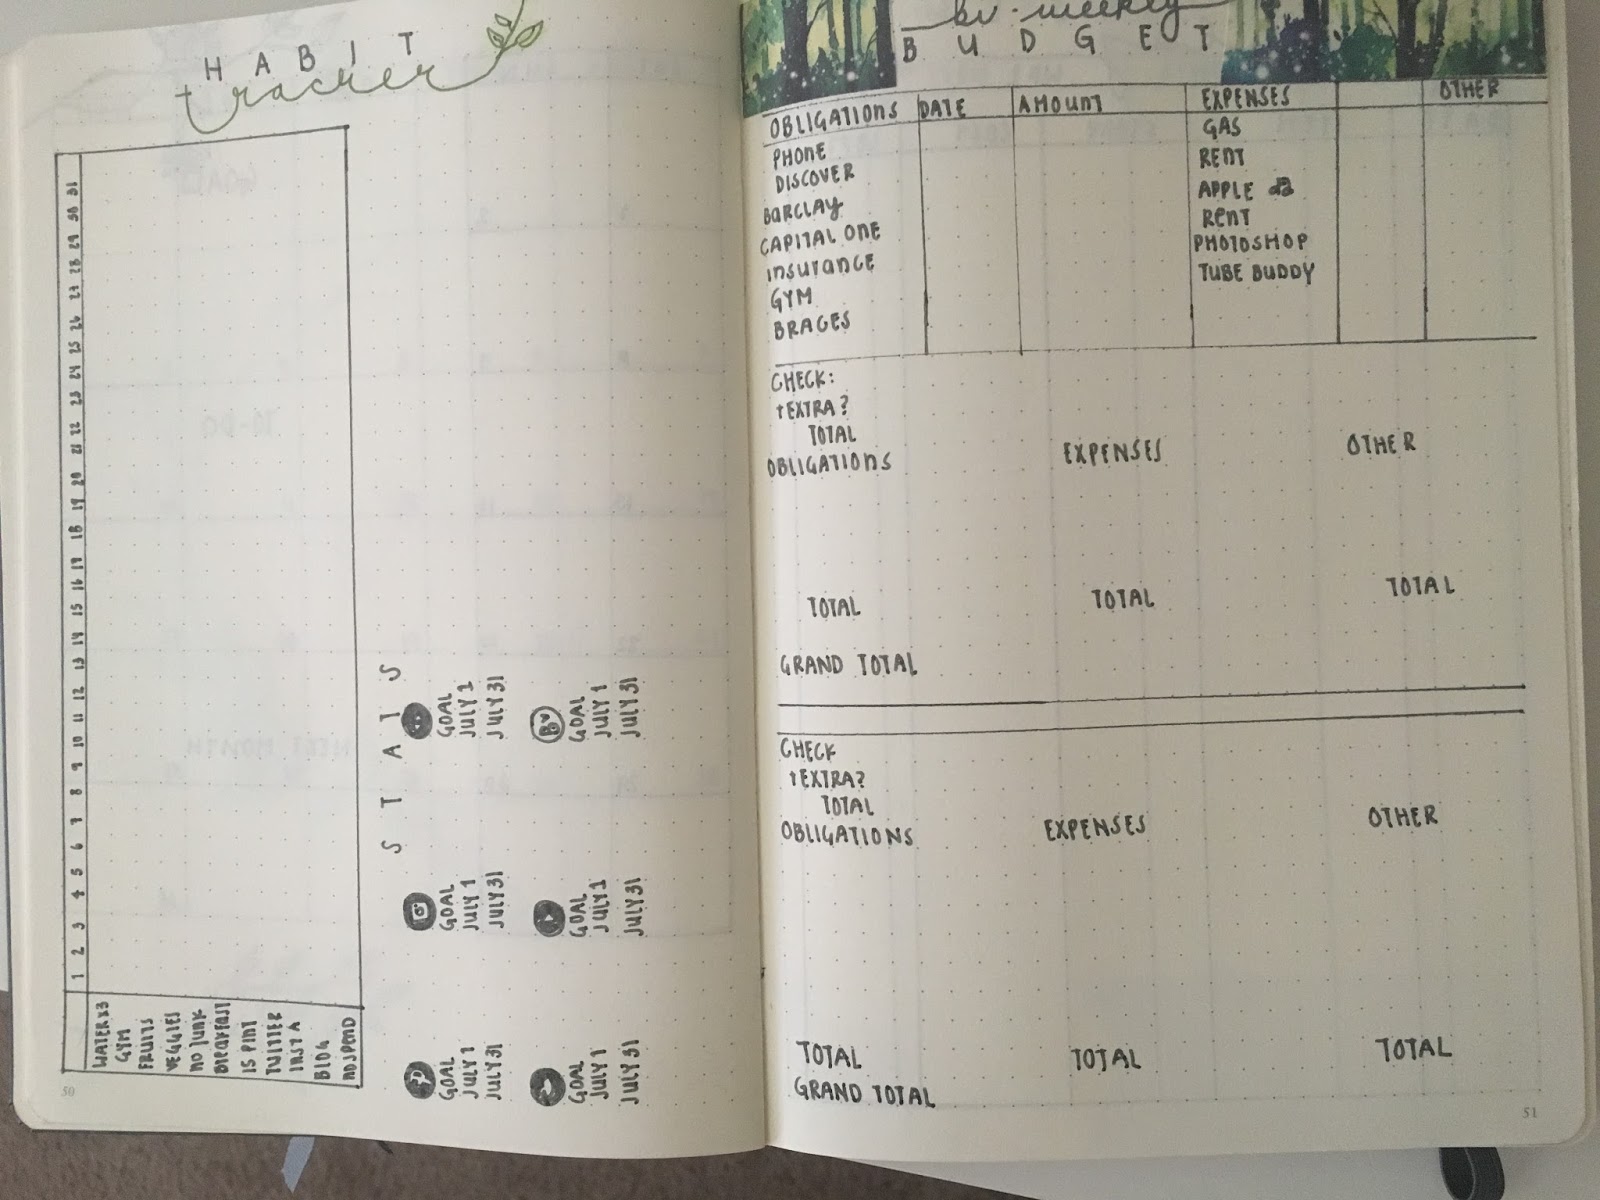 HABIT
tracker
1 2 3 4 5 6 7 8 9 10 11 12 13 14 15 16 19 18 19 20 21 22 23 24 25 26 27 28 29 30 31
WATER x3
GYM
FRUITS
VEGGIES
NO JUNK
BREAKFAST
15 PINT
TWITTER
INSTA
BLOG
NO SPEND
STATS
GOAL
JULY 1
JULY 31
GOAL
JULY 1
JULY 31
GOAL
JULY 1
JULY 31
GOAL
JULY 1
JULY 31
GOAL
JULY 1
JULY 31
BV
GOAL
JULY 1
JULY 31
50
bi-weekly
BUDGET
OBLIGATIONS DATE AMOUNT EXPENSES OTHER
PHONE GAS
DISCOVER RENT
BARCLAY APPLE
CAPITAL ONE RENT
INSURANCE PHOTOSHOP
GYM TUBE BUDDY
BRACES
CHECK:
+EXTRA?
TOTAL
OBLIGATIONS EXPENSES OTHER
TOTAL TOTAL TOTAL
GRAND TOTAL
CHECK
+EXTRA?
TOTAL
OBLIGATIONS EXPENSES OTHER
TOTAL TOTAL TOTAL
GRAND TOTAL
51